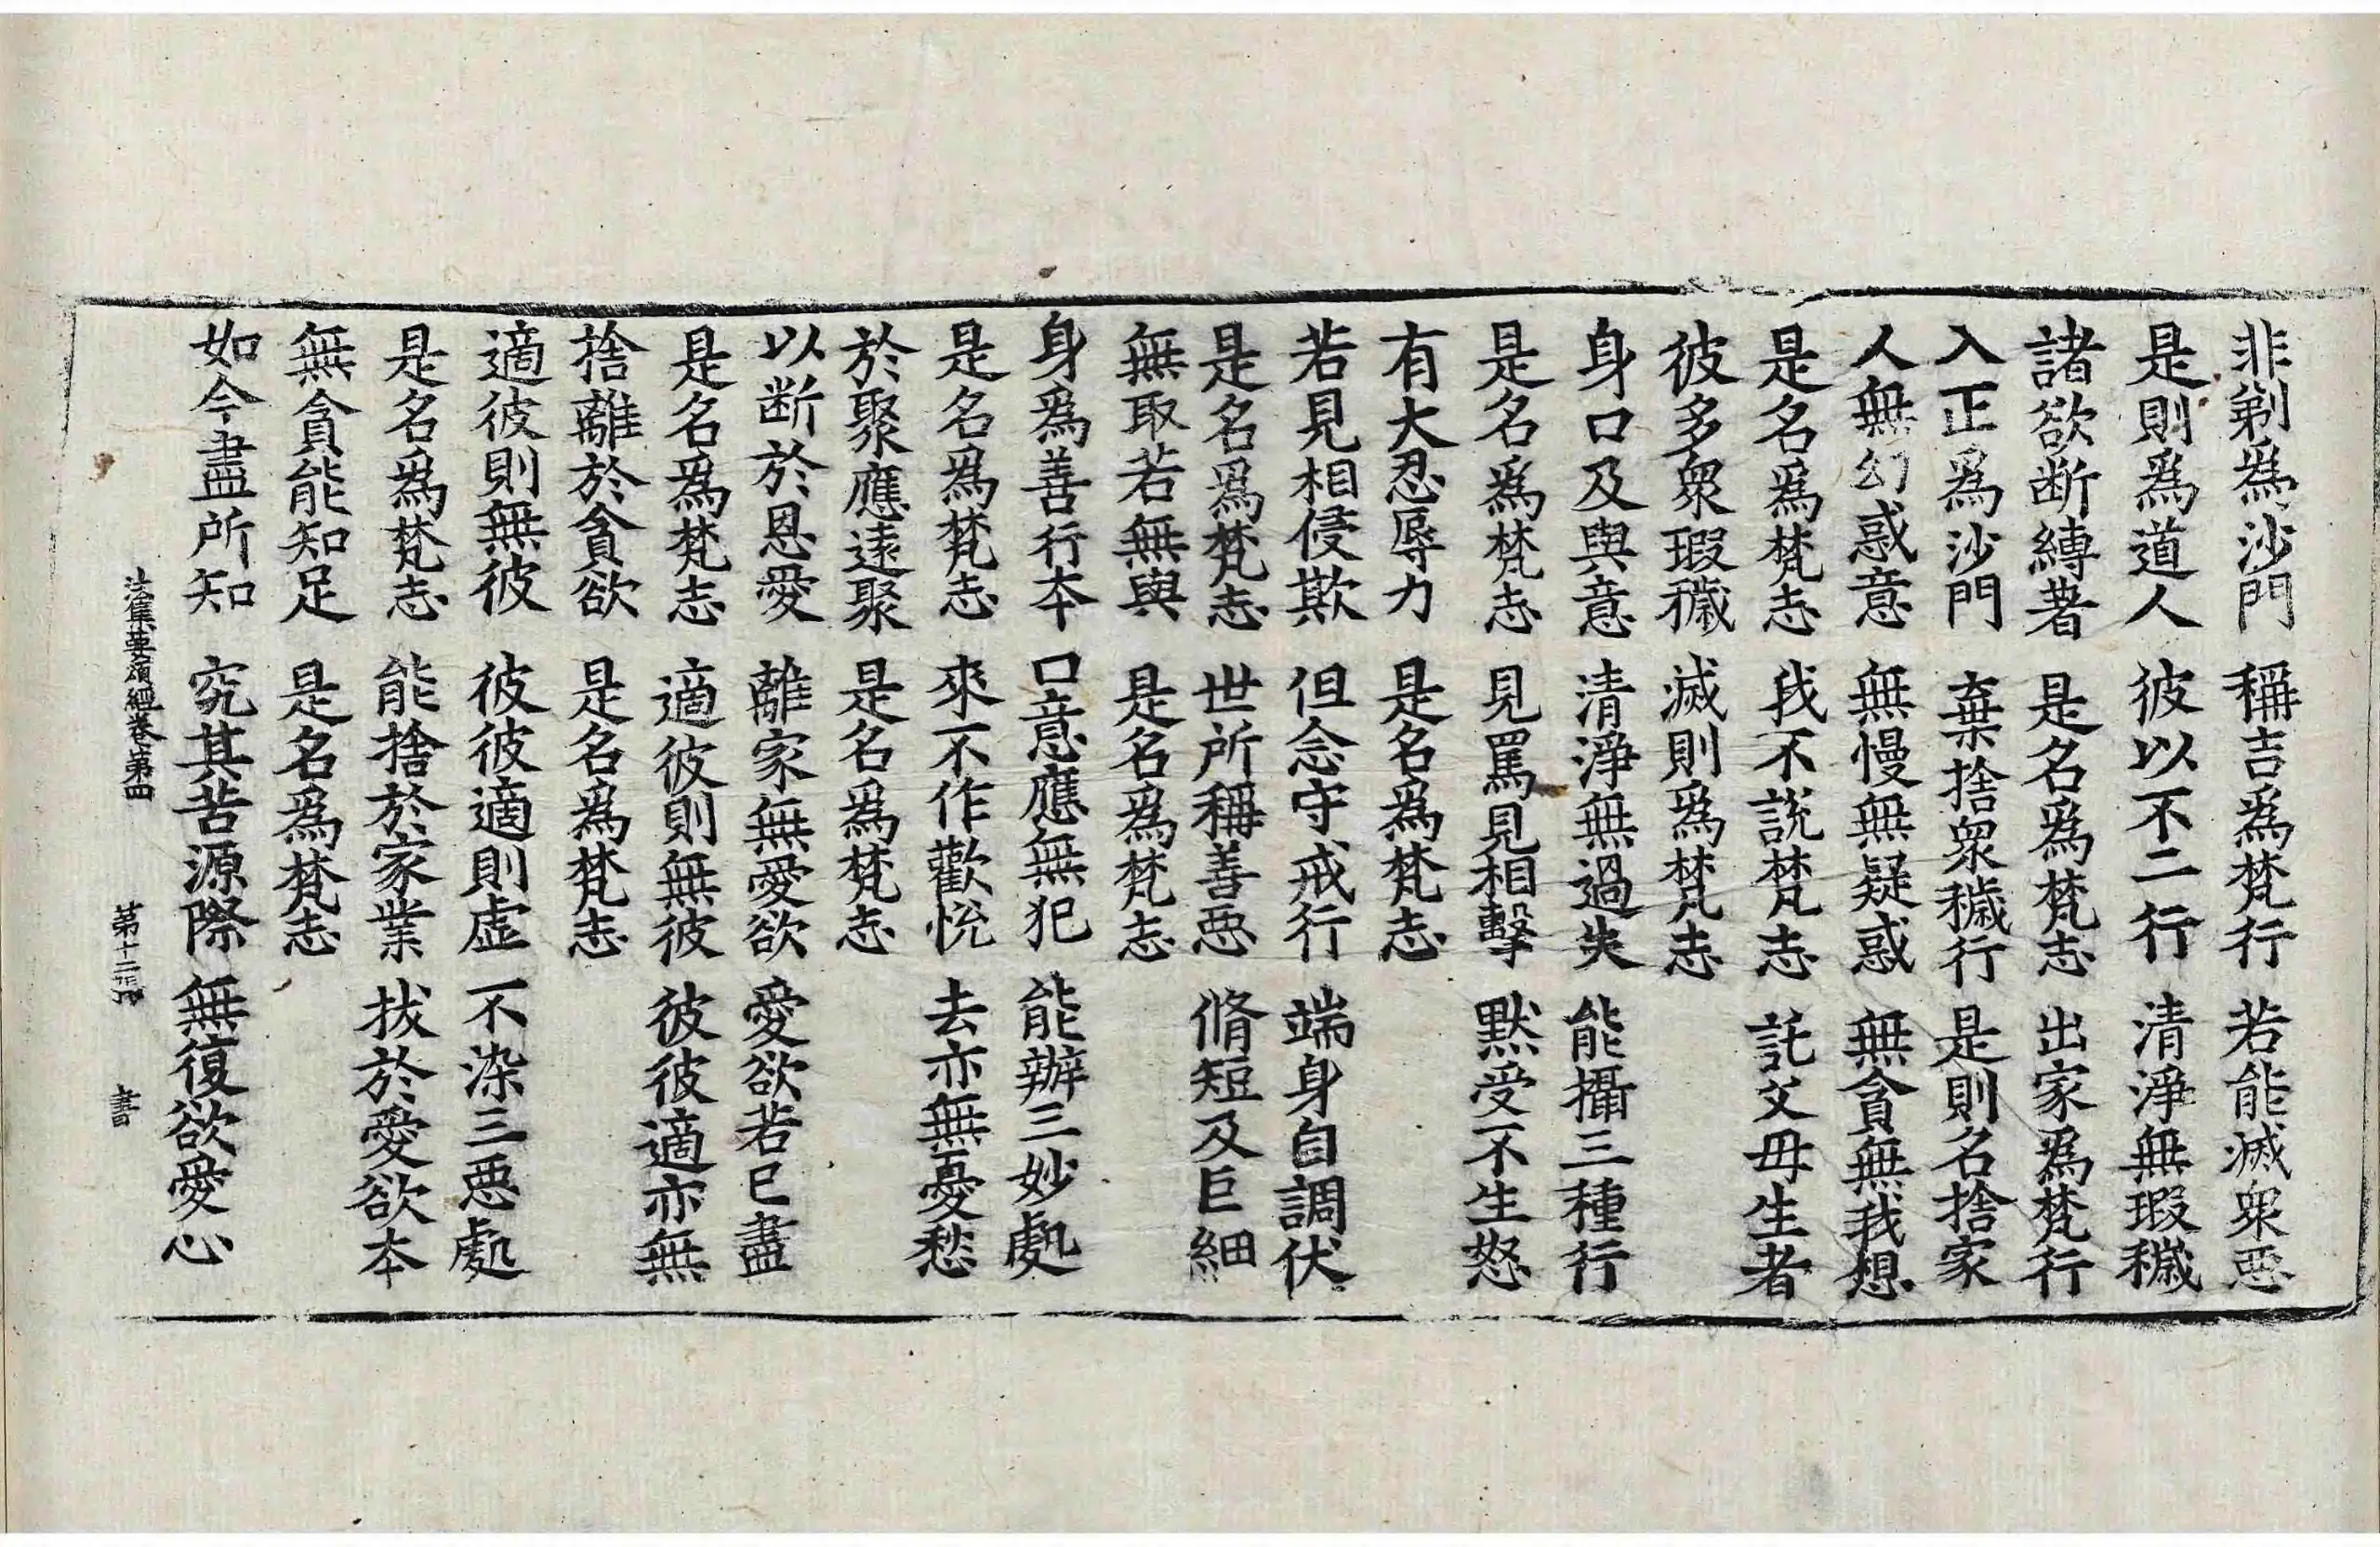 非剃爲沙門 稱吉爲梵行 若能滅衆惡
是則爲道人 彼以不二行 清淨無瑕穢
諸欲断縛著 是名爲梵志 出家爲梵行
入正爲沙門 棄捨衆穢行 是則名捨家
人無幻惑意 無慢無疑惑 無貪無我想
是名爲梵志 我不說梵志 託父母生者
彼多衆瑕穢 滅則爲梵志
身口及與意 清淨無過失 能攝三種行
是名爲梵志 見罵見相擊 默受不生怒
有大忍辱力 是名爲梵志
若見相侵欺 但念守戒行 端身自調伏
是名爲梵志 世所稱善惡 脩短及巨細
無取若無與 是名爲梵志
身爲善行本 口意應無犯 能辦三妙處
是名爲梵志 來不作歡悅 去亦無憂愁
於聚應遠聚 是名爲梵志
以断於恩愛 離家無愛欲 愛欲若已盡
是名爲梵志 適彼則無彼 彼彼適亦無
捨離於貪欲 是名爲梵志
適彼則無彼 彼彼適則虛 不染三惡處
是名爲梵志 能捨於家業 拔於愛欲本
無貪能知足 是名爲梵志
如今盡所知 究其苦源際 無復欲愛心
法集要頌經卷第四 第十二張 書